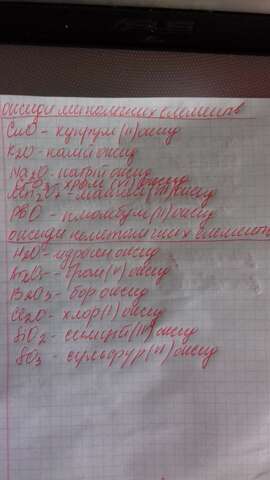 оксиди металічних елементів
CuO - купрум (II) оксид
K2O - калій оксид
Na2O - натрій оксид
CrO3 - хром (VI) оксид
Mn2O7 - манган (VII) оксид
PbO - плюмбум (II) оксид
оксиди неметалічних елементів
H2O - гідроген оксид
Br2O5 - Бром (V) оксид
B2O3 - бор оксид
Cl2O - хлор (I) оксид
SiO2 - силіцій (IV) оксид
SO3 - сульфур (VI) оксид